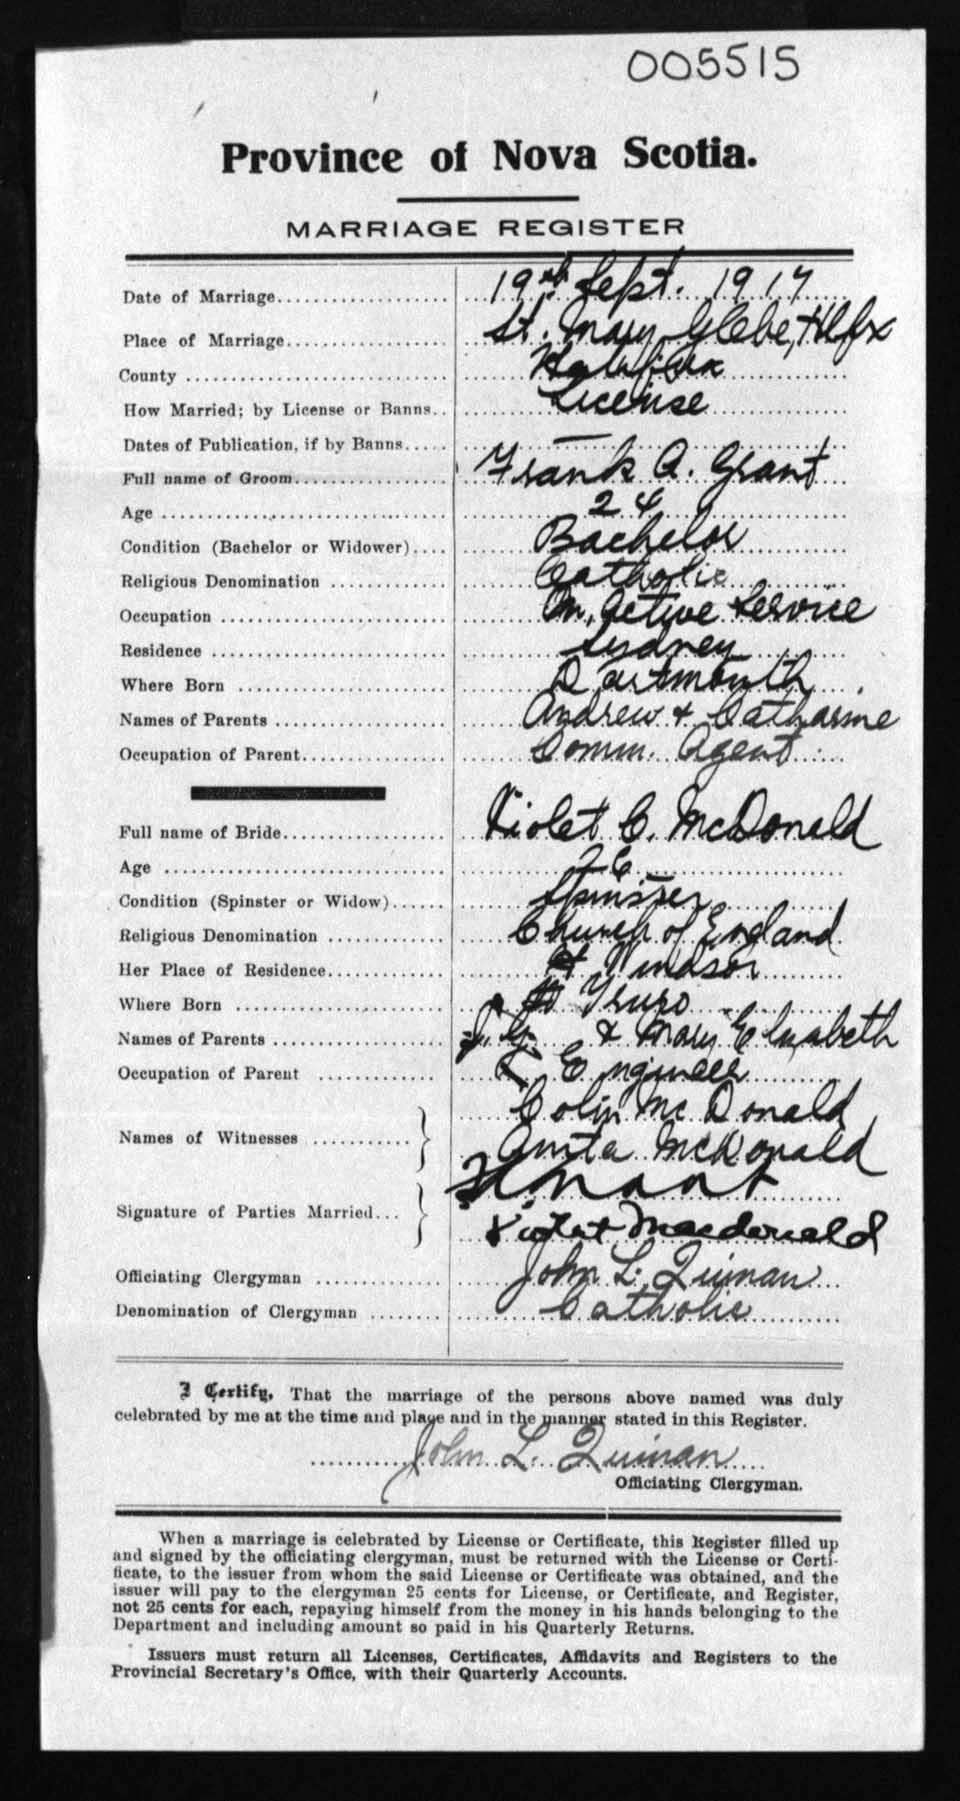 005515
Province of Nova Scotia.
MARRIAGE REGISTER
Date of Marriage 19th Sept. 1917
Place of Marriage St. Mary Glebe, Hlfx
County Halifax
How Married; by License or Banns License
Dates of Publication, if by Banns —
Full name of Groom Frank A. Grant
Age 24
Condition (Bachelor or Widower) Bachelor
Religious Denomination Catholic
Occupation On Active Service
Residence Sydney
Where Born Dartmouth
Names of Parents Andrew & Catharine
Occupation of Parent Comm. Agent
Full name of Bride Violet C. McDonald
Age 26
Condition (Spinster or Widow) Spinster
Religious Denomination Church of England
Her Place of Residence Windsor
Where Born Truro
Names of Parents & Mary Elizabeth
Occupation of Parent Engineer
Names of Witnesses Colin McDonald
Anita McDonald
Signature of Parties Married
Violet Macdonald
Officiating Clergyman John L. Quinan
Denomination of Clergyman Catholic
I Certify, That the marriage of the persons above named was duly
celebrated by me at the time and place and in the manner stated in this Register.
John L. Quinan
Officiating Clergyman.
When a marriage is celebrated by License or Certificate, this Register filled up
and signed by the officiating clergyman, must be returned with the License or Certi-
ficate, to the issuer from whom the said License or Certificate was obtained, and the
issuer will pay to the clergyman 25 cents for License, or Certificate, and Register,
not 25 cents for each, repaying himself from the money in his hands belonging to the
Department and including amount so paid in his Quarterly Returns.
Issuers must return all Licenses, Certificates, Affidavits and Registers to the
Provincial Secretary's Office, with their Quarterly Accounts.